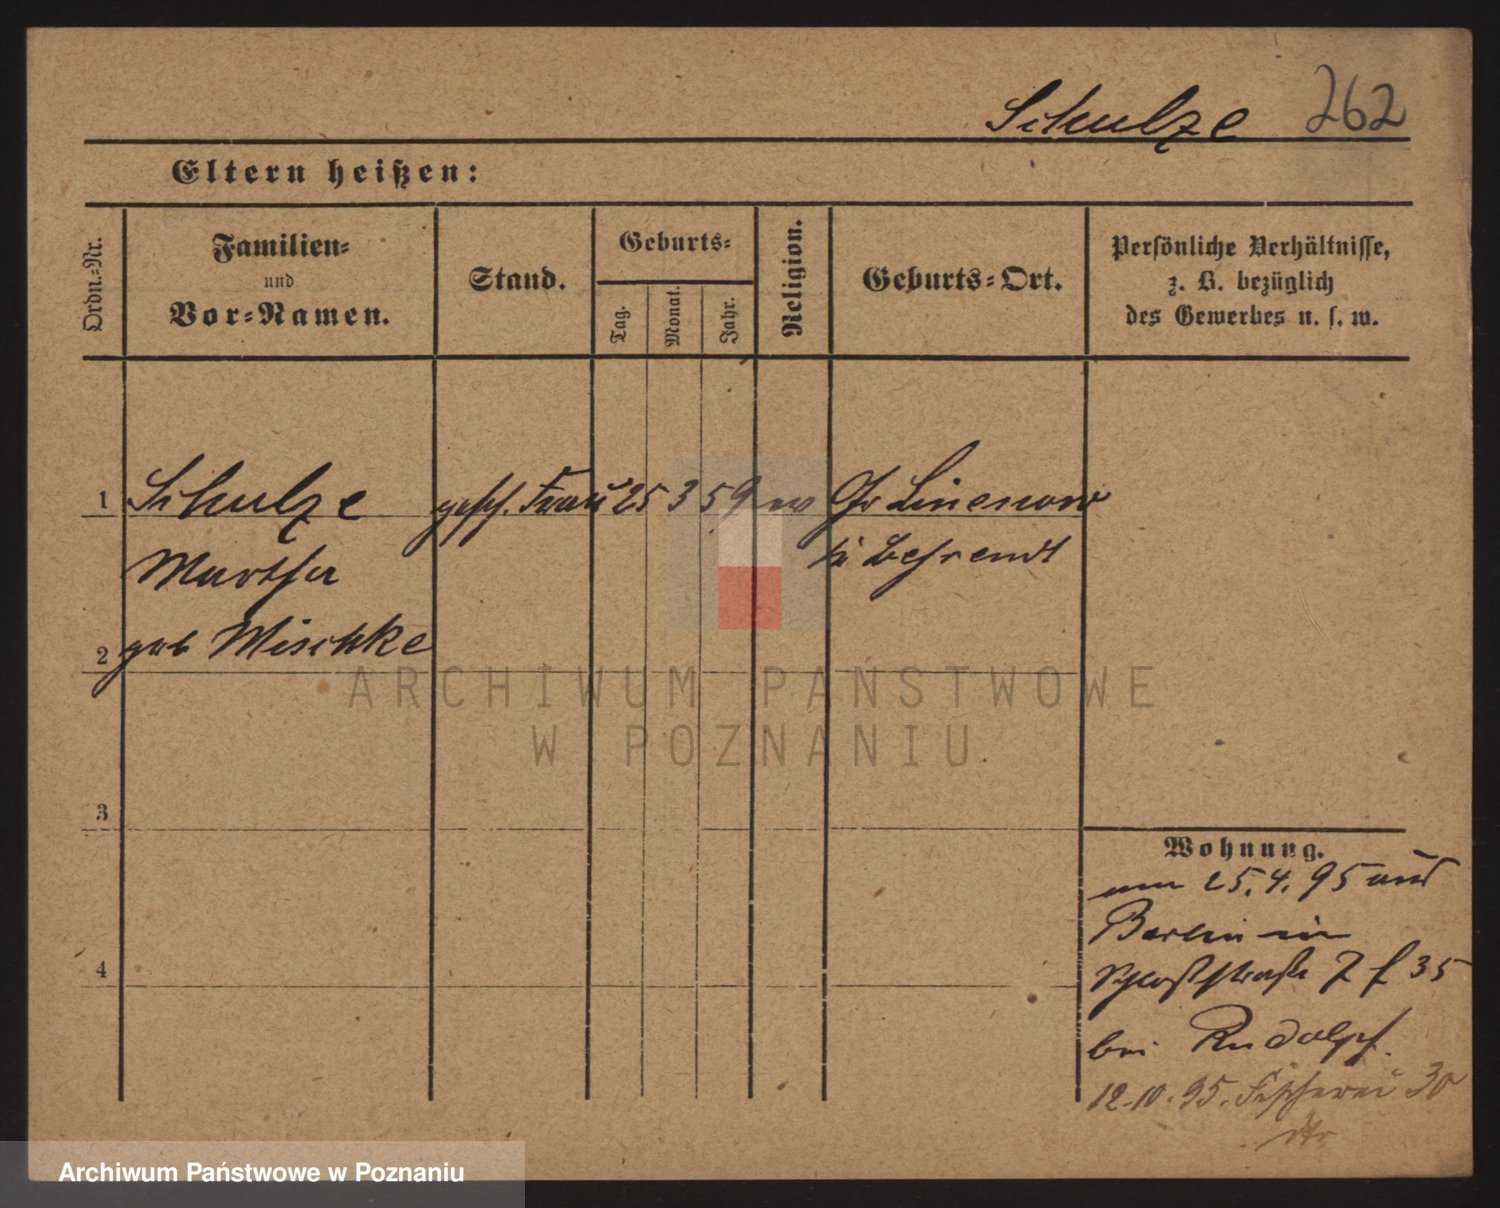 Schulze 262
Eltern heißen:
Ordn.-Nr.
Familien-
und
Vor-Namen.
Stand.
Geburts-
Tag.
Monat.
Jahr.
Religion.
Geburts-Ort.
Persönliche Verhältnisse,
z. B. bezüglich
des Gewerbes u. s. w.
1 Schulze gesch. Frau 25 3 59 ev Gr Linenow
Martha Kr Behrendt
2 geb Mischke
3
4
Wohnung.
am 25.4.95 aus
Berlin in
Schloßstraße 35
bei Rudolph.
12.10.95. Fischerei 30
ARCHIWUM PAŃSTWOWE
W POZNANIU
Archiwum Państwowe w Poznaniu